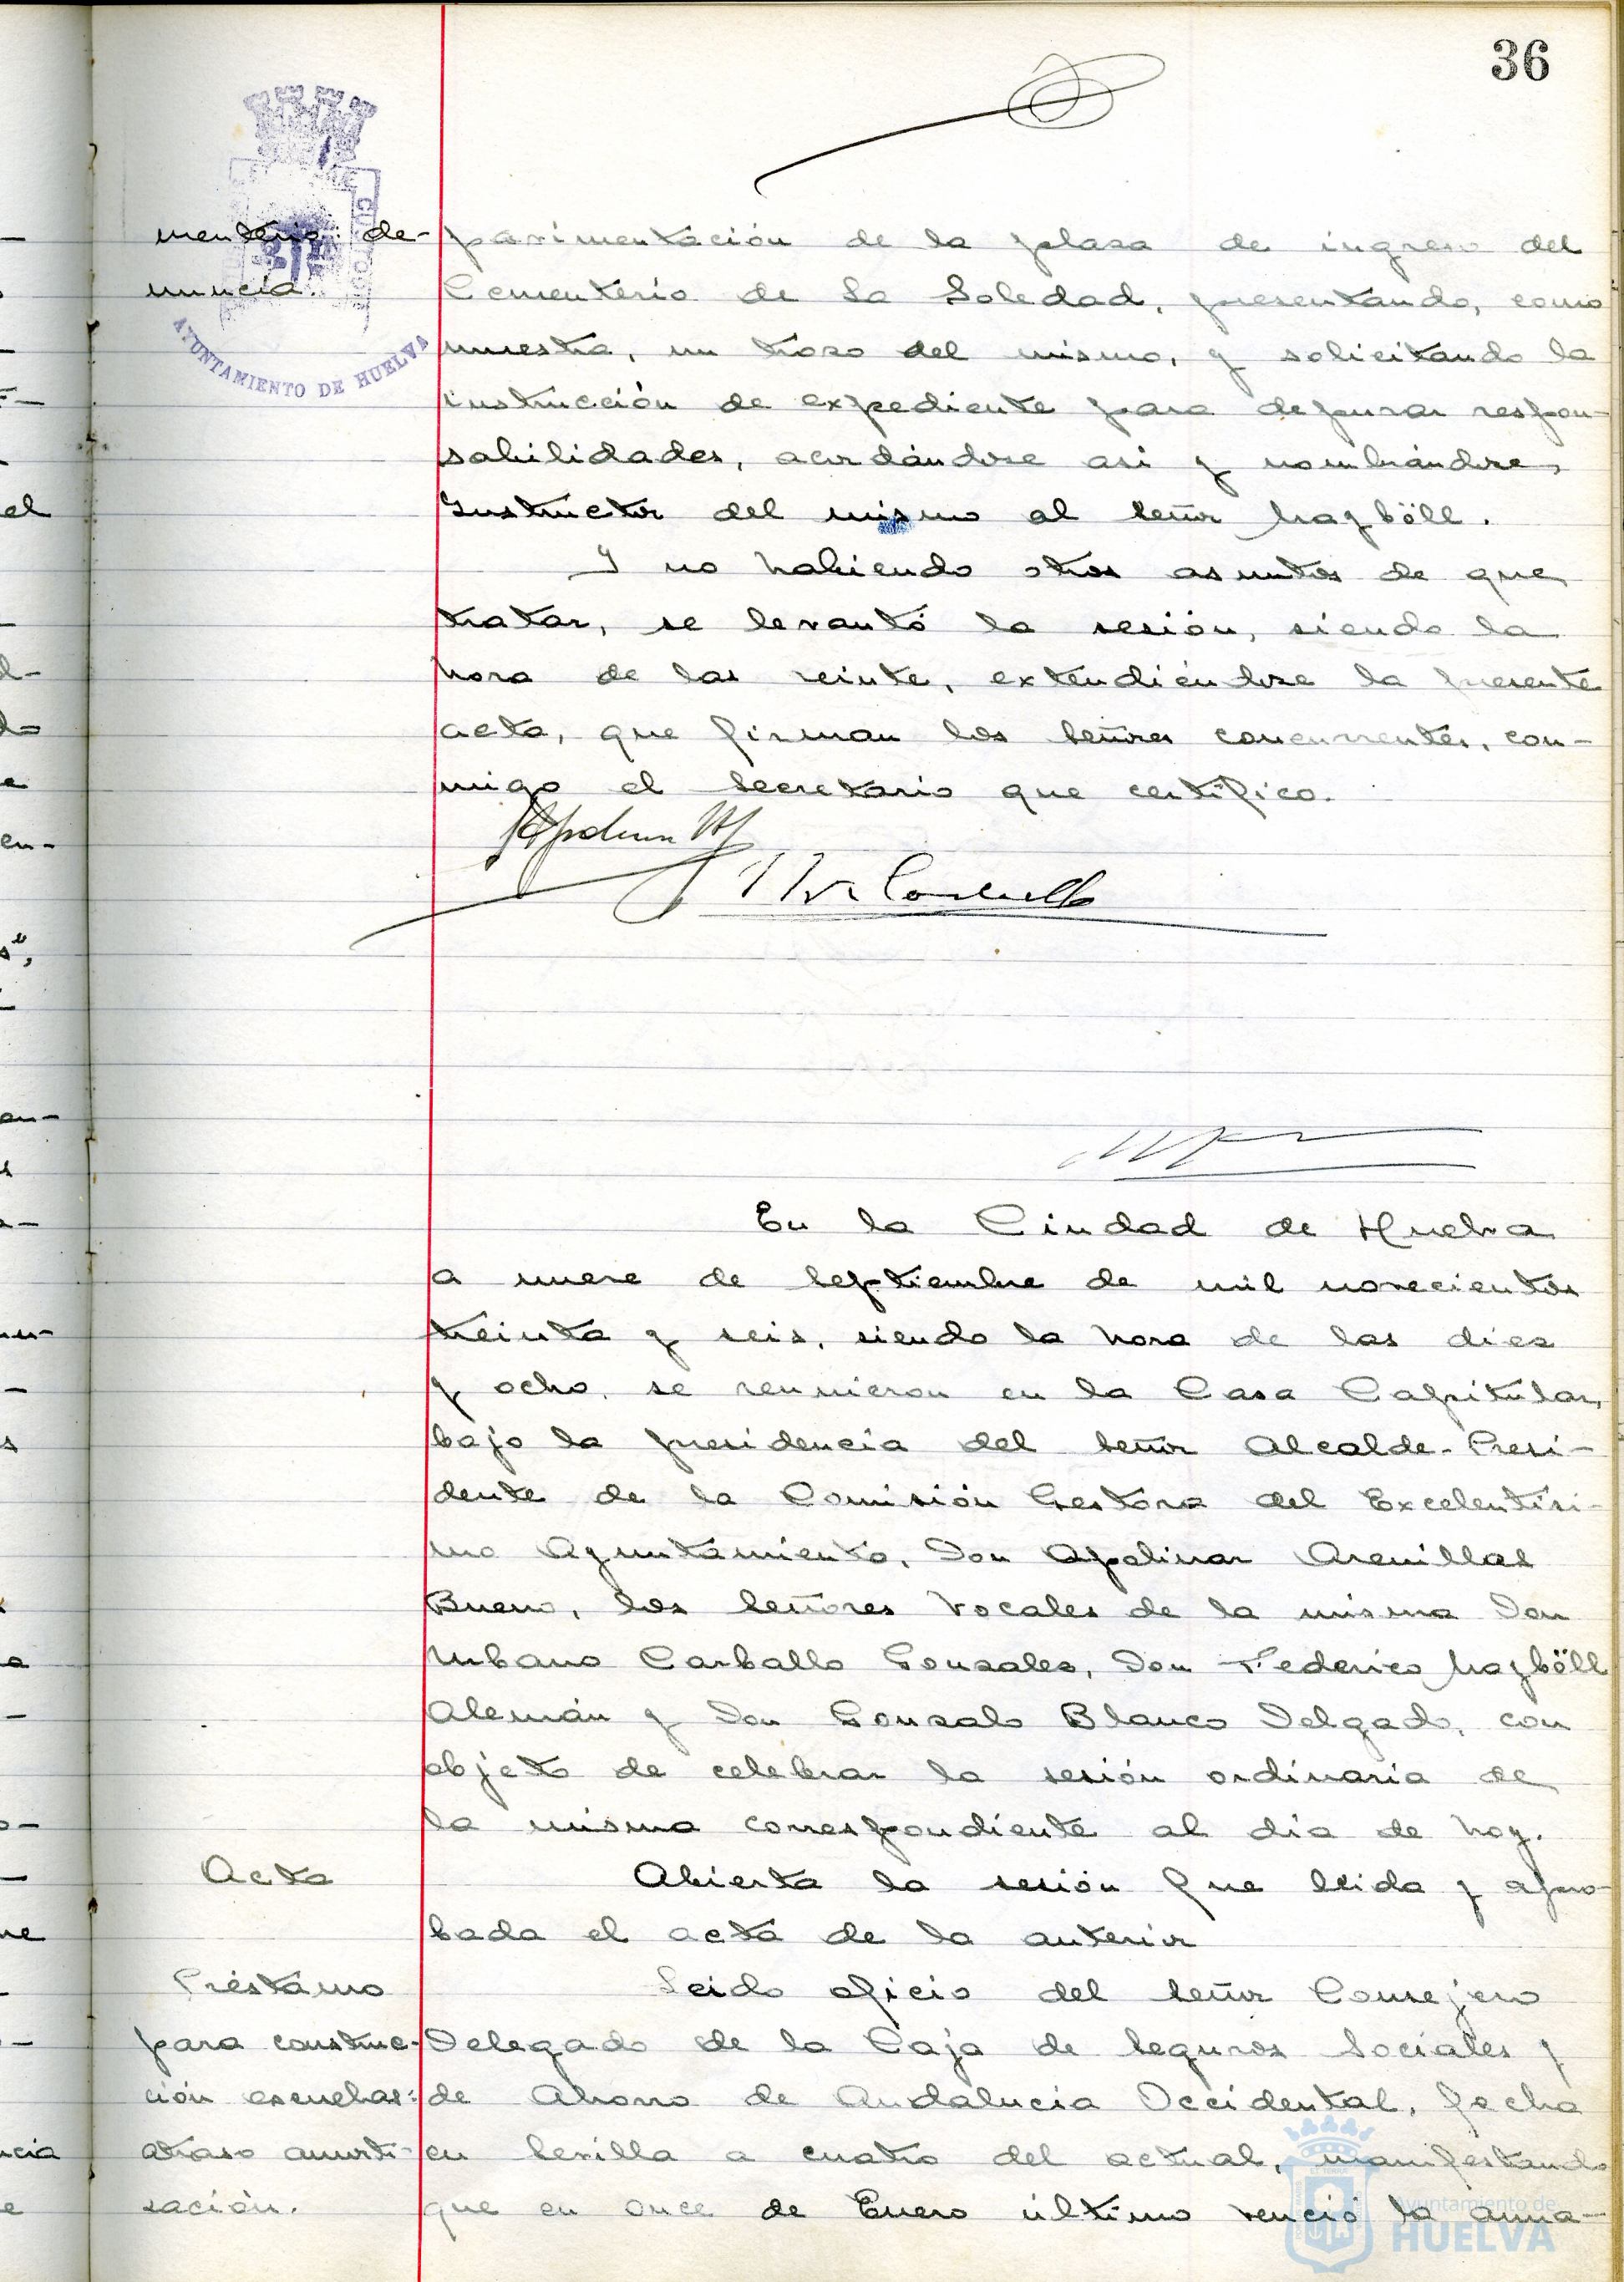 36
menterio: de-
nuncia.
AYUNTAMIENTO DE HUELVA
pavimentación de la plaza de ingreso del
Cementerio de La Soledad, presentando, como
muestra, un trozo del mismo, y solicitando la
instrucción de expediente para depurar respon-
sabilidades, acordándose asi y nombrándose
Instructor del mismo al Señor Mazböll.
Y no habiendo otros asuntos de que
tratar, se levantó la sesión, siendo la
hora de las veinte, extendiéndose la presente
acta, que firman los Señores concurrentes, con-
migo el Secretario que certifico.
En la Ciudad de Huelva
a nueve de Septiembre de mil novecientos
treinta y seis, siendo la hora de las diez
y ocho, se reunieron en la Casa Capitular,
bajo la presidencia del Señor Alcalde-Presi-
dente de la Comisión Gestora del Excelentísi-
mo Ayuntamiento, Don Apolinar Arenillas
Bueno, los Señores Vocales de la misma Don
Urbano Carballo Gonzalez, Don Federico Mazböll
Alemán y Don Gonzalo Blanco Delgado, con
objeto de celebrar la sesión ordinaria de
la misma correspondiente al dia de hoy.
Acta
Abierta la sesión fue leida y apro-
bada el acta de la anterior
Préstamo
para construc-
ción escuelas:
atraso amorti-
zación.
Leido oficio del Señor Consejero
Delegado de la Caja de Seguros Sociales y
de Ahorro de Andalucia Occidental, fecha
en Sevilla a cuatro del actual, manifestando
que en once de Enero último venció la anua-
Ayuntamiento de
HUELVA